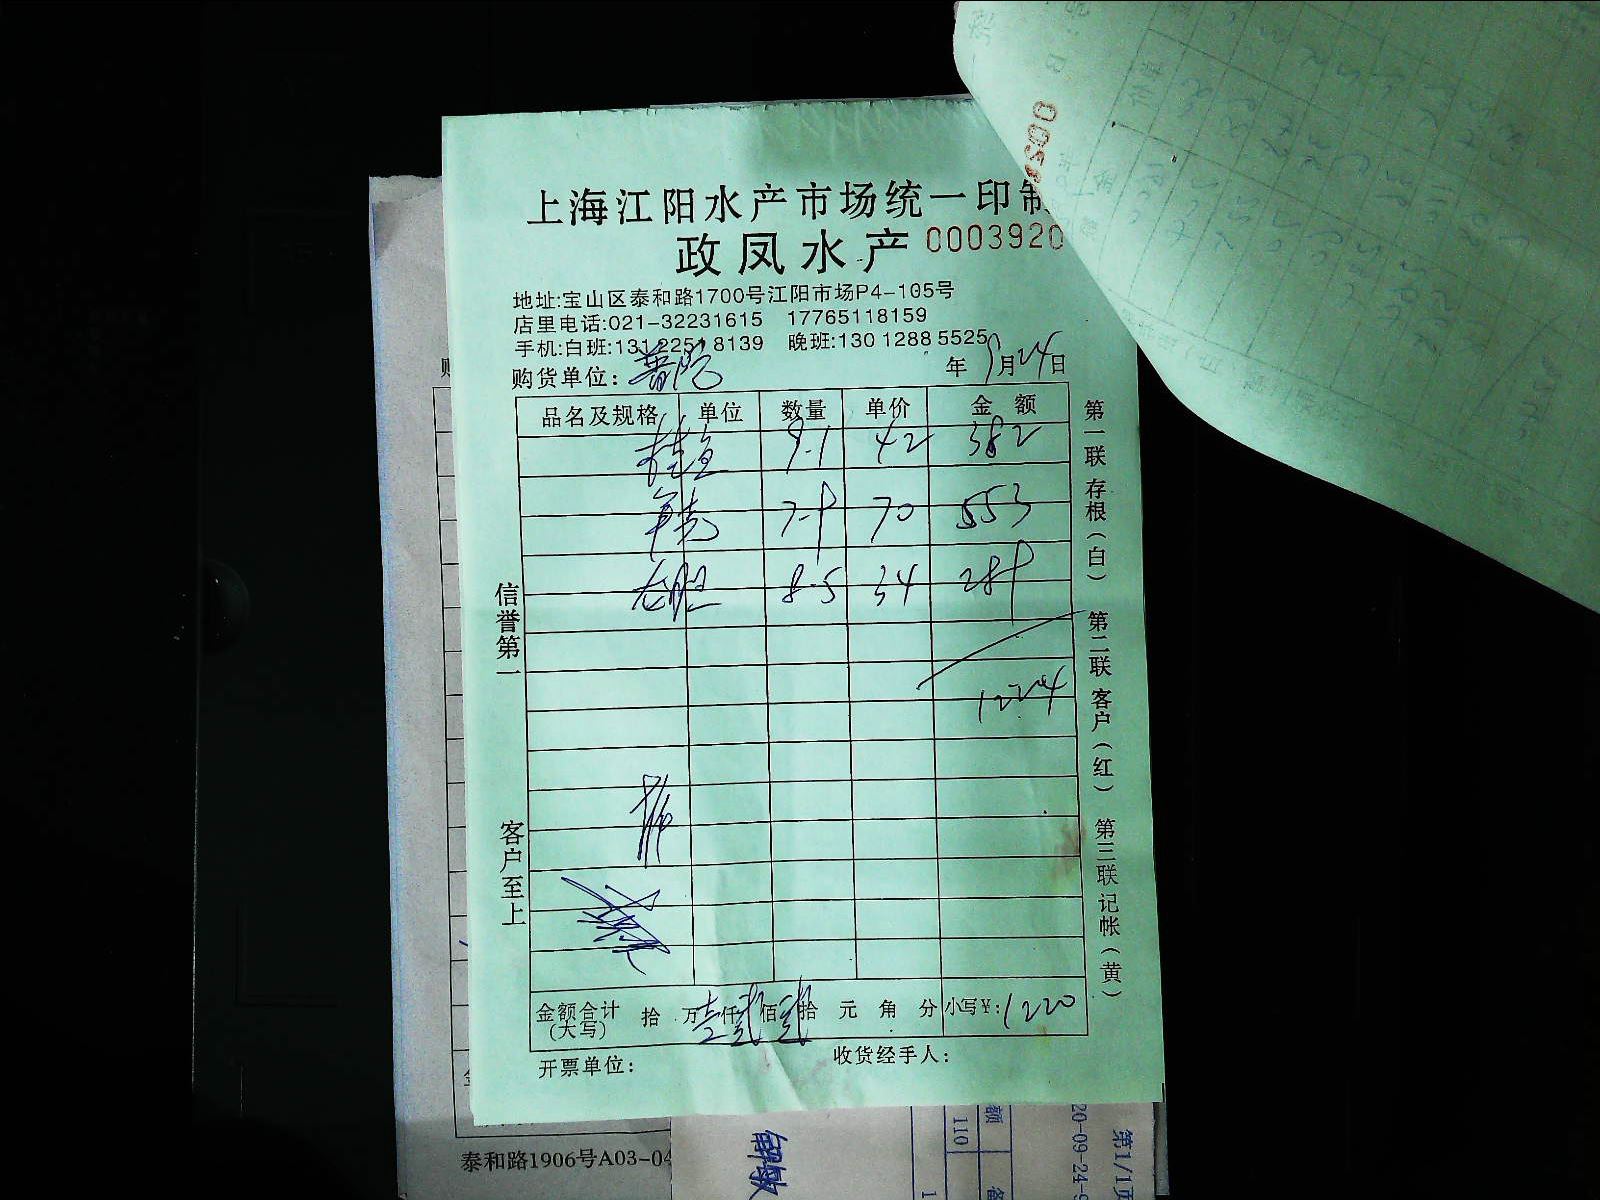 上海江阳水产市场统一印制
政凤水产 0003920
地址:宝山区泰和路1700号江阳市场P4-105号
店里电话:021-32231615 17765118159
手机:白班:131 2251 8139 晚班:130 1288 5525
购货单位: 普陀 年 9月24日
品名及规格 单位 数量 单价 金额
桂鱼 9.1 42 382
7.9 70 553
老虎 8.5 34 289
1224
金额合计(大写) 拾 万 壹仟 贰佰 贰拾 元 角 分 小写¥:1220
开票单位: 收货经手人:
信誉第一 客户至上
第一联 存根(白) 第二联 客户(红) 第三联 记帐(黄)
泰和路1906号A03-04
额
110
20-09-24-9
第1/1页